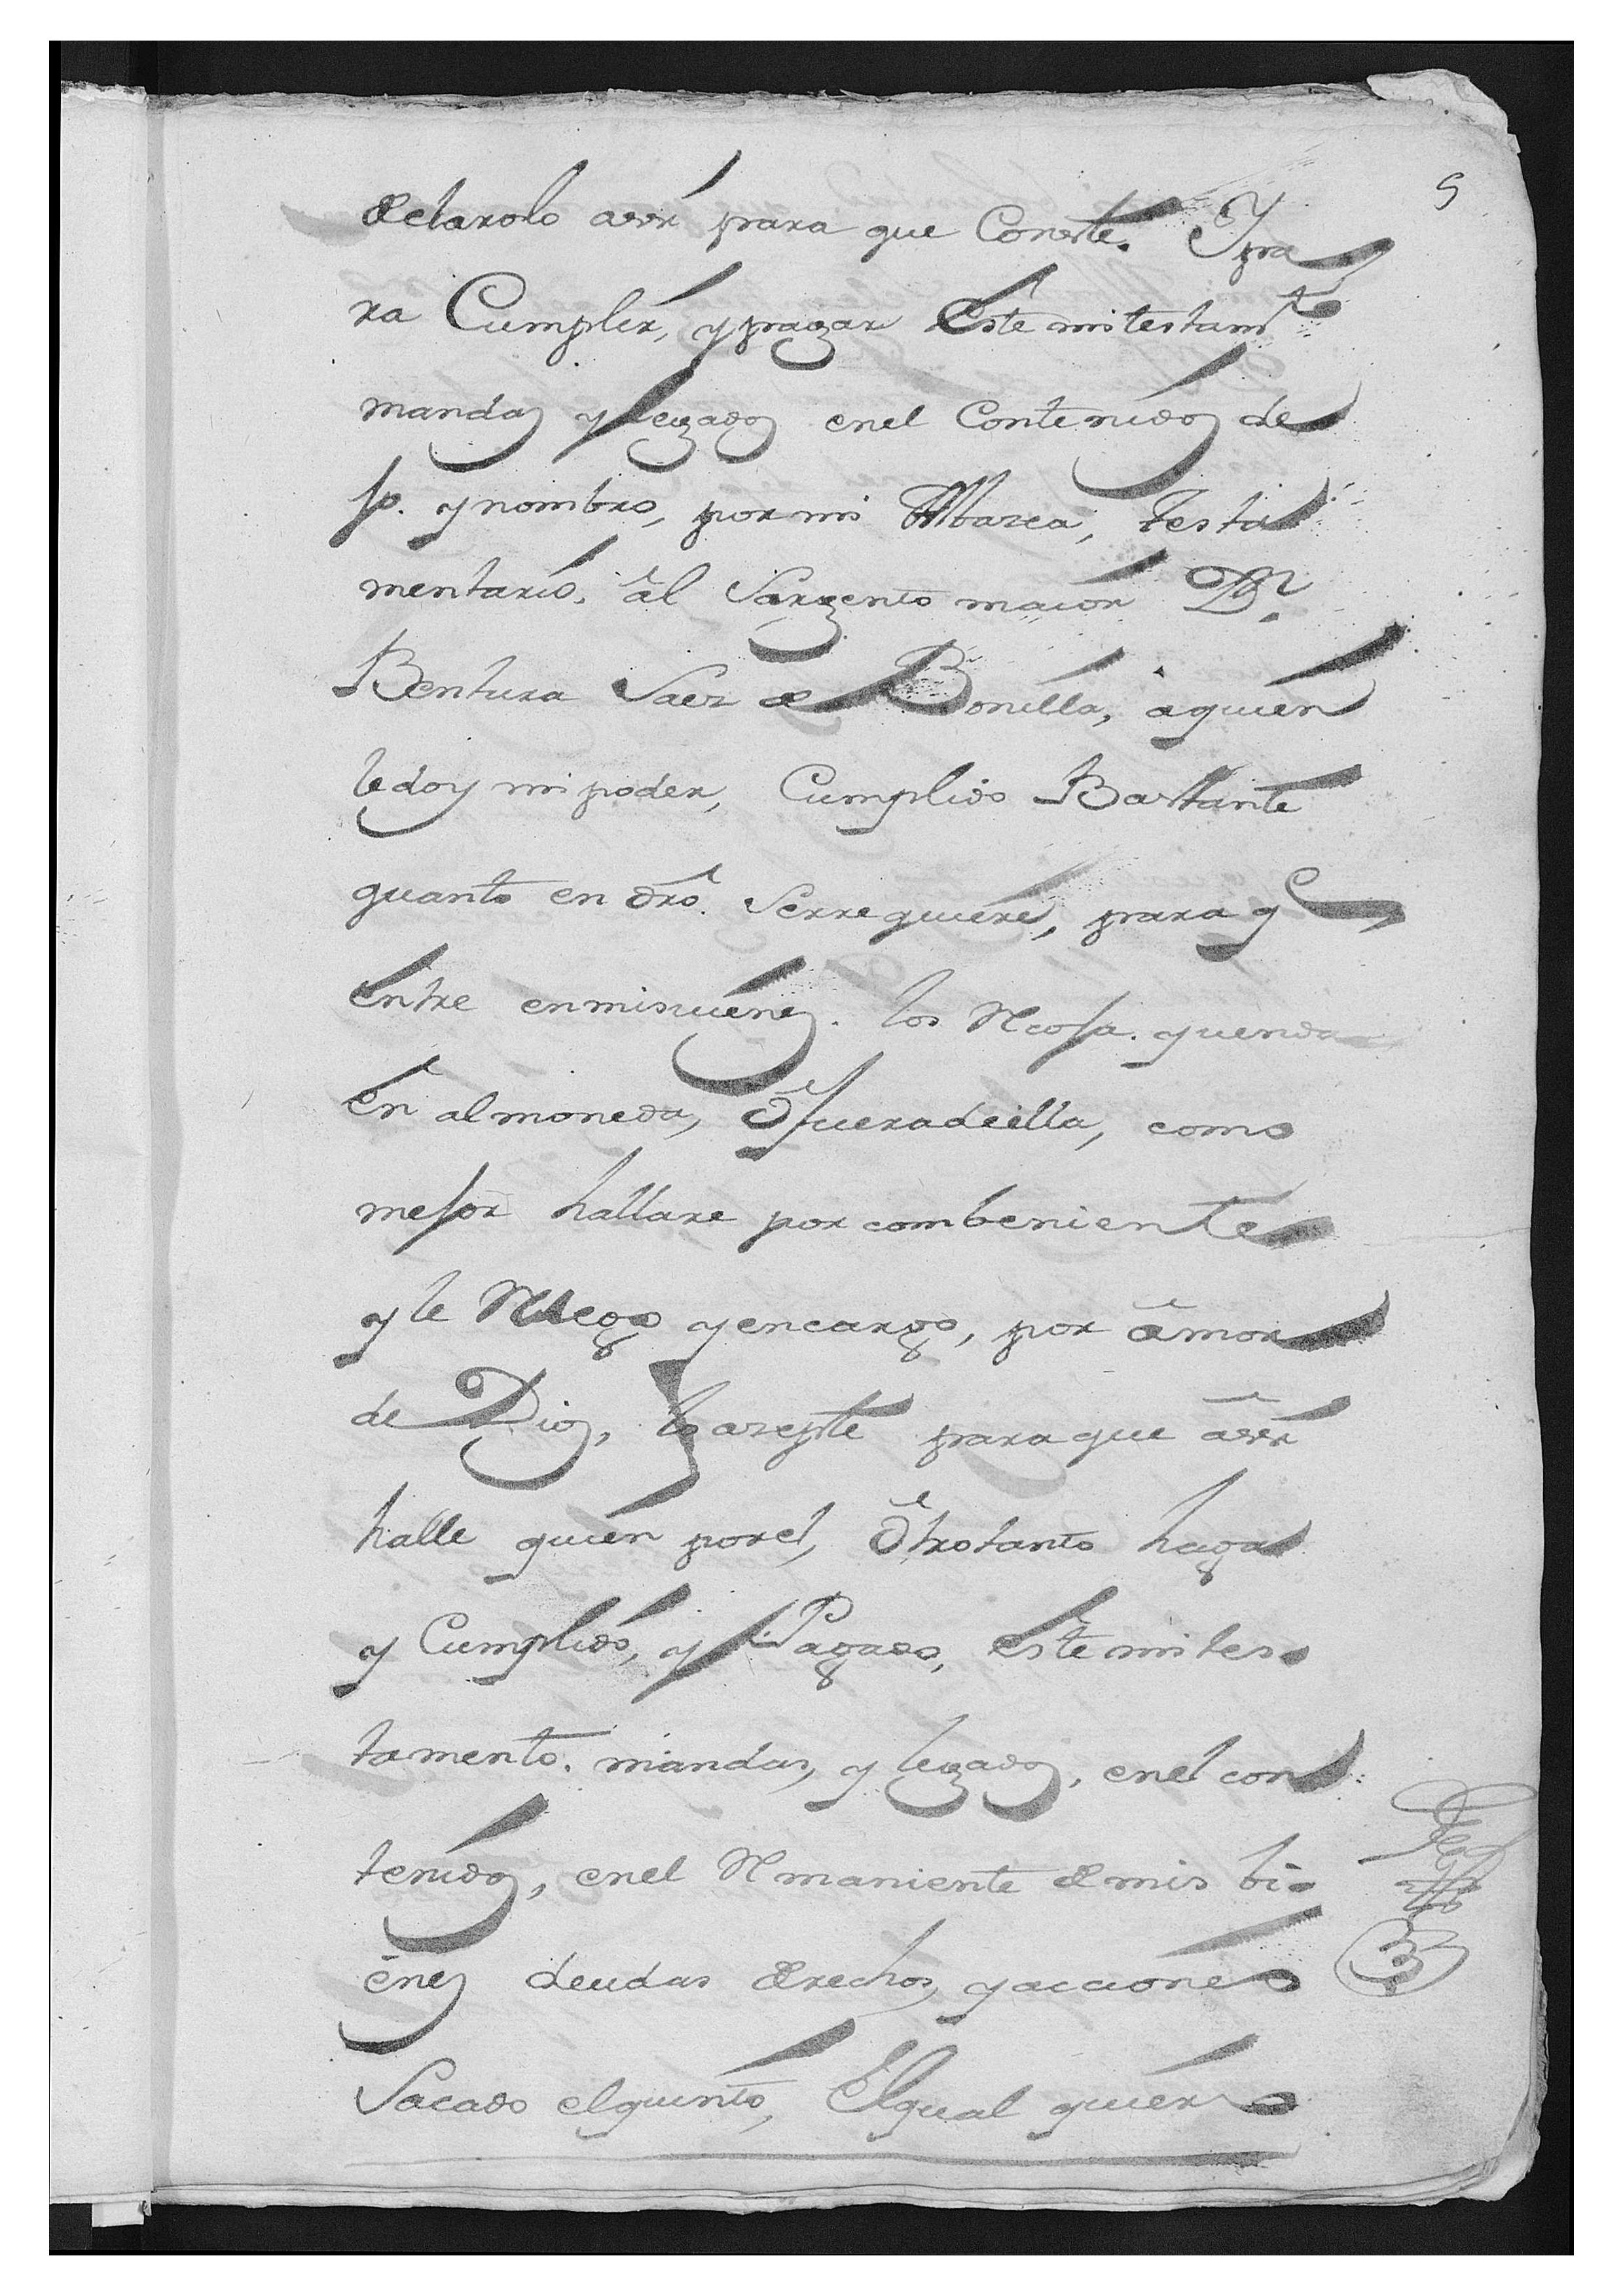 5
declarolo assi para que Conste. Y pa
ra Cumplir, y pagar este mi testamto
mandas y legados en el Contenidos de
jo. y nombro, por mi Albazea, testa
mentario, al Sargento maior Dn.
Bentura Saez de Bonilla, a quien
le doy mi poder, Cumplido Bastante
quanto en dro. Serrequiere, para q
entre en mis uienes. los Recoja. y uenda
en almoneda, o fuera de ella, como
mejor hallare por combeniente
y le Ruego y encargo, por amor
de Dios, lo azepte para que assi
halle quien por el, otro tanto haga
y Cumplido, y Pagado, este mi tes
tamento. mandas, y legados, en el con
tenidos, en el Remaniente de mis bi
enes deudas derechos y acciones
Sacado el quinto, El qual quiero